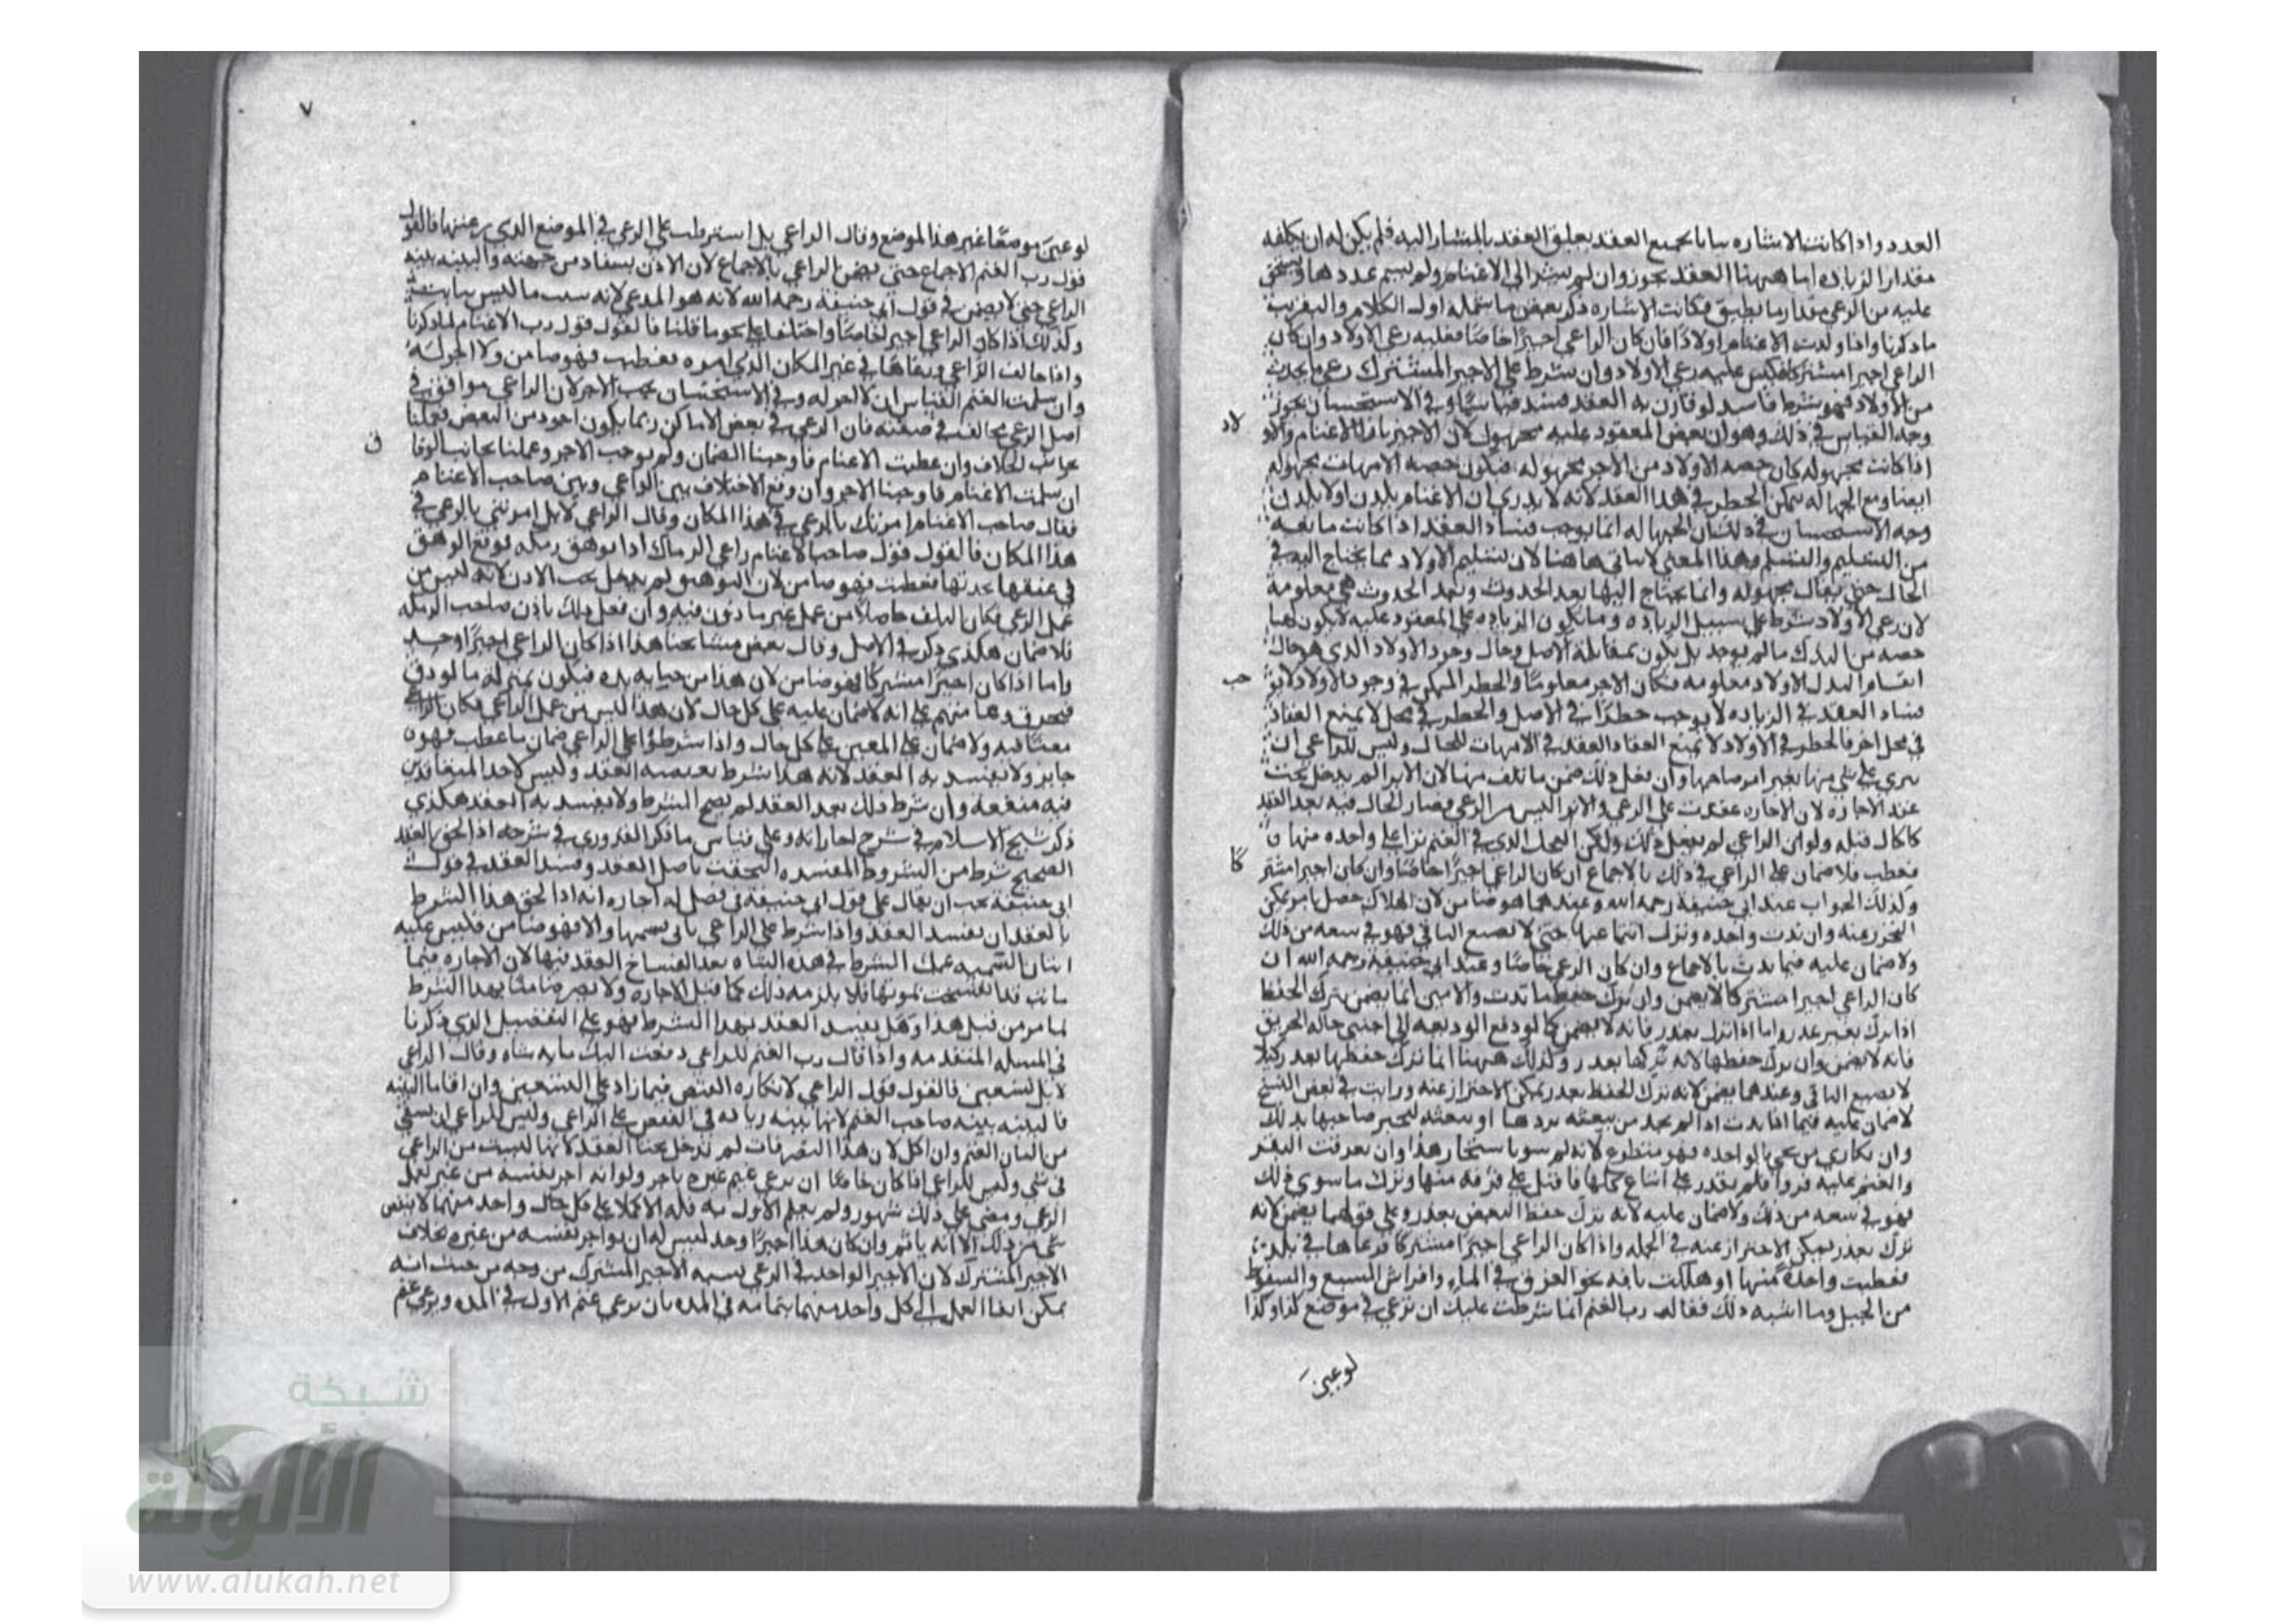 العدد واذا كانت الاشاره بيانا لجميع العقد يعلق العقد بالمشار اليه فلم يكن له ان يكلفه
مقدار الزياده اما ههنا العقد يجوز وان لم يشر الى الاغنام ولم يسم عددها ويستحق
عليه من الرعي مقدار ما يطيق فكانت الاشاره ذكر بعض ما شمله اول الكلام
ما ذكرنا واذا ولدت الاغنام اولادا فان كان الراعي اجيرا خاصا فعليه رعي الاولاد وان كان
الراعي اجيرا مشتركا فليس عليه رعي الاولاد وان شرط على الاجير المشترك رعي ما يحدث
من الاولاد فهو شرط فاسد لو قارن به العقد فسد قياسا وفي الاستحسان يجوز
وجه القياس في ذلك وهو ان بعض المعقود عليه مجهول لان الاجير بازاء الاغنام والاو
لاد
اذا كانت مجهوله كان حصه الاولاد من الاجر مجهوله فتكون حصه الامهات مجهوله
ايضا ومع الجهاله تمكن الخطر في هذا العقد لانه لا يدري ان الاغنام يلدن او لا يلدن
وجه الاستحسان في ذلك ان الجهاله انما يوجب فساد العقد اذا كانت مانعه
من التسليم والتسلم وهذا المعنى لا يتاتى هاهنا لان تسليم الاولاد مما يحتاج اليه في
الحال حتى يقال مجهوله وانما يحتاج اليها بعد الحدوث وبعد الحدوث هي معلومة
لان رعي الاولاد شرط على سبيل الزياده وما يكون الزياده على المعقود عليه لا يكون لها
حصه من البدل ما لم يوجد بل يكون بمقابلة الاصل وحال وجود الاولاد الذي هو حال
انقسام البدل الاولاد معلومه فكان الاجر معلوما والخطر المتمكن في وجود الاولاد لا يو
جب
فساد العقد في الزياده لا يوجب خطرا في الاصل والخطر في محل لا يمنع انعقاد
في محل اخر فالخطر في الاولاد لا يمنع انعقاد العقد في الامهات للحال وليس للراعي ان
ينزي على شي منها بغير امر صاحبها وان فعل ذلك ضمن ما تلف منها لان الانزا لم يدخل تحت
عقد الاجاره لان الاجاره عقدت على الرعي والانزا ليس من الرعي فصار الحال فيه بعد العقد
كالحال قبله ولو ان الراعي لم يفعل ذلك ولكن الفحل الذي في الغنم نزا على واحده منها
فعطب فلا ضمان على الراعي في ذلك بالاجماع ان كان الراعي اجيرا خاصا وان كان اجيرا مشتر
كا
وكذلك الجواب عند ابي حنيفة رحمه الله وعندهما هو ضامن لان الهلاك حصل بامر يمكن
التحرز عنه وان ندت واحده وترك اتباعها حتى لا يضيع الباقي فهو في سعه من ذلك
ولا ضمان عليه فيما ندت بالاجماع وان كان الراعي خاصا وعند ابي حنيفة رحمه الله ان
كان الراعي اجيرا مشتركا لا يضمن وان ترك حفظ ما ندت والامين انما يضمن بترك الحفظ
اذا ترك بغير عذر واما اذا ترك بعذر فانه لا يضمن كما لو دفع الوديعه الى اجنبي حاله الحريق
فانه لا يضمن وان ترك حفظها لانه تركها بعذر وكذلك ههنا انما ترك حفظها بعذر كيلا
لا يضيع الباقي وعندهما يضمن لانه ترك الحفظ بعذر يمكن الاحتراز عنه ورايت في بعض النسخ
لا ضمان عليه فيما اذا ندت اذا لم يجد من يبعثه يردها او يبعثه ليخبر صاحبها بذلك
وان تكارى من يجي بالواحده فهو متطوع لانه لم يومر باستئجار هذا وان تفرقت البقر
والغنم عليه فرقا فلم يقدر على اتباع كلها فاقبل على فرقه منها وترك ما سوى ذلك
فهو في سعه من ذلك ولا ضمان عليه لانه ترك حفظ البعض بعذر وعلى قولهما يضمن لانه
ترك بعذر يمكن الاحتراز عنه في الجمله واذا كان الراعي اجيرا مشتركا فرعاها في بلد
فعطبت واحدة منها او هلكت بافه نحو الغرق في الماء وافتراس السبع والسقوط
من الجبل وما اشبه ذلك فقال له رب الغنم انما شرطت عليك ان ترعى في موضع كذا وكذا
لو عين
٧
لو عين موضعا غير هذا الموضع وقال الراعي بل اشترطت على الرعي في الموضع الذي رعيتها فالقول
قول رب الغنم الاجماع حتى يضمن الراعي بالاجماع لان الاذن يستفاد من جهته والبينه بينه
الراعي حتى لا يضمن في قول ابي حنيفة رحمه الله لانه هو المدعي لانه يثبت ما ليس بثابت
وكذلك اذا كان الراعي اجيرا خاصا واختلفا على نحو ما قلنا فالقول قول رب الاغنام لما ذكرنا
واذا خالف الراعي ورعاها في غير المكان الذي امره فعطبت فهو ضامن ولا اجر له
وان سلمت الغنم القياس ان لا اجر له وفي الاستحسان يجب الاجر لان الراعي موافق في
اصل الرعي مخالف في صفته فان الرعي في بعض الاماكن ربما يكون اجود من البعض فعملنا
بجانب الخلاف وان عطبت الاغنام فاوجبنا الضمان ولم نوجب الاجر وعملنا بجانب الوفا
ق
ان سلمت الاغنام فاوجبنا الاجر وان وقع الاختلاف بين الراعي وبين صاحب الاغنام
فقال صاحب الاغنام امرتك بالرعي في هذا المكان وقال الراعي لا بل امرتني بالرعي في
هذا المكان فالقول قول صاحب الاغنام راعي الرماك اذا توهق رمكه فوقع الوهق
في عنقها فجذبها فعطبت فهو ضامن لان التوهيق لم يدخل تحت الاذن لانه ليس من
عمل الرعي فكان التلف حاصلا من عمل غير ماذون فيه وان فعل ذلك باذن صاحب الرمكه
فلا ضمان هكذى ذكر في الاصل وقال بعض مشايخنا هذا اذا كان الراعي اجيرا وحد
واما اذا كان اجيرا مشتركا فهو ضامن لان هذا من جنايه يده فتكون بمنزلة ما لو دق
فتخرق وعامتهم على انه لا ضمان عليه على كل حال لان هذا ليس من عمل الراعي فكان الراعي
معينا فيه ولا ضمان على المعين على كل حال واذا شرطوا على الراعي ضمان ما عطب فهو
جايز ولا يفسد به العقد لانه هذا شرط يقتضيه العقد وليس لاحد المتعاقدين
فيه منفعة وان شرط ذلك بعد العقد لم يصح الشرط ولا يفسد به العقد هكذي
ذكر شيخ الاسلام في شرح اجاراته وعلى قياس ما ذكر القدوري في شرحه اذا الحق بالعقد
الصحيح شرط من الشروط المفسده التحقت باصل العقد وفسد العقد في قول
ابي حنيفة يجب ان يقال على قول ابي حنيفة في فصل اجاره انه اذا الحق هذا الشرط
بالعقد ان يفسد العقد واذا شرط على الراعي ياتي بسمتها والا فهو ضامن فليس عليه
اتيان السمه عمل الشرط في هذه الشاه بعد انفساخ العقد فيها لان الاجاره فيما
ماتت قد انفسخت بموتها فلا يلزمه ذلك كما قبل الاجاره ولا يصير ضامنا بهذا الشرط
لما مر من قبل هذا وهل يفسد العقد بهذا الشرط فهو على التفصيل الذي ذكرنا
في المسله المتقدمه واذا قال رب الغنم للراعي دفعت اليك مايه شاه وقال الراعي
لا بل تسعين فالقول قول الراعي لانكاره القبض فيما زاد على التسعين وان اقاما البينه
فالبينه بينه صاحب الغنم لانها تثبت زياده في القبض على الراعي وليس للراعي ان يسقي
من البان الغنم وان اكل لان هذا التصرفات لم تدخل تحت العقد لانها ليست من الراعي
في شي وليس للراعي اذا كان خاصا ان يرعى غنم غيره باجر ولو انه اجر نفسه من غير لعمل
الرعي ومضى على ذلك شهور ولم يعلم الاول به فله الاجر كملا على كل حال واحد منهما لا ينقص
شي من ذلك الا انه ياثم وان كان هذا اجيرا وحد ليس له ان يواجر نفسه من غيره بخلاف
الاجير المشترك لان الاجير الواحد في الرعي يشبه الاجير المشترك من وجه من حيث انه
يمكن ايفا العمل الى كل واحد منهما بتمامه في المده بان يرعى غنم الاول في المده ويرعى غنم
شبكة
الألوكة
www.alukah.net